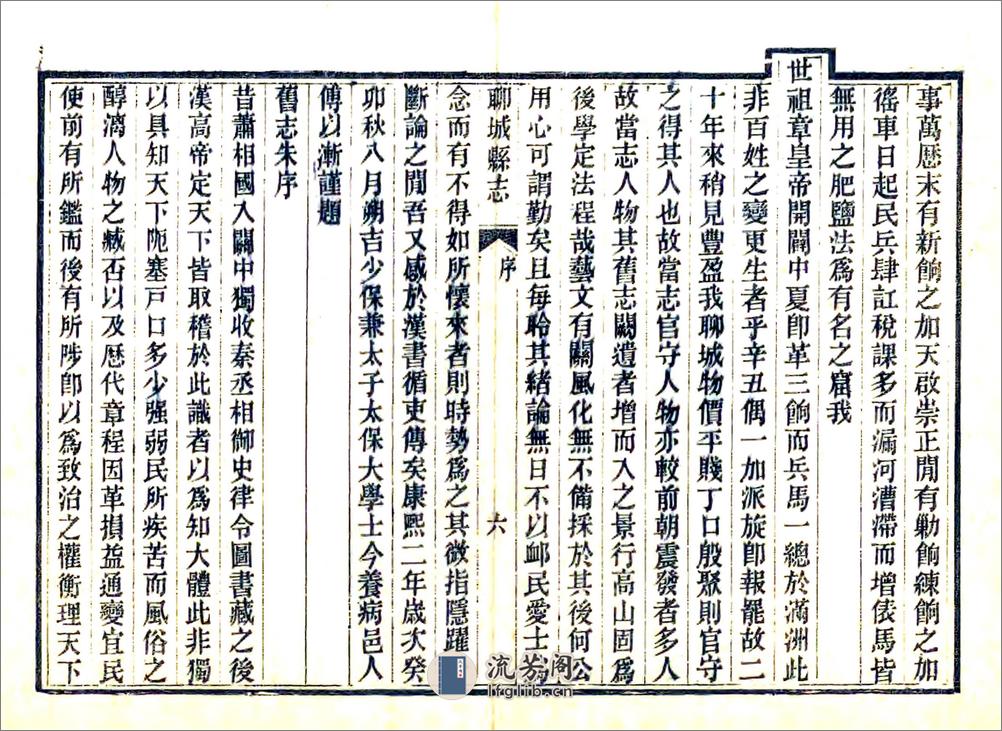 事萬歷末有新餉之加天啟崇正閒有勦餉練餉之加
徭車日起民兵肆訌稅課多而漏河漕滯而增俵馬皆
無用之肥鹽法爲有名之窟我
世祖章皇帝開闢中夏卽革三餉而兵馬一總於滿洲此
非百姓之變更生者乎辛丑偶一加派旋卽報罷故二
十年來稍見豐盈我聊城物價平賤丁口殷聚則官守
之得其人也故當志官守人物亦較前朝震發者多人
故當志人物其舊志闕遺者增而入之景行高山固爲
後學定法程哉藝文有關風化無不備採於其後何公
用心可謂勤矣且每聆其緒論無日不以邺民愛士爲
聊城縣志 序 六
念而有不得如所懷來者則時勢爲之其微指隱躍
斷論之閒吾又感於漢書循吏傳矣康熙二年歲次癸
卯秋八月朔吉少保兼太子太保大學士今養病邑人
傅以漸謹題
舊志朱序
昔蕭相國入關中獨收秦丞相御史律令圖書藏之後
漢高帝定天下皆取稽於此識者以爲知大體此非獨
以具知天下阨塞戸口多少强弱民所疾苦而風俗之
醇漓人物之臧否以及歷代章程因革損益通變宜民
使前有所鑑而後有所陟卽以爲致治之權衡理天下
流芳阁
lfglib.cn